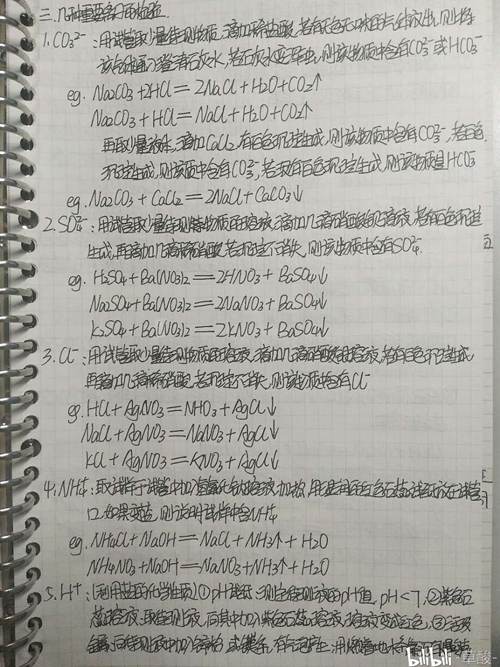 三.几种重要离子的检验
1.CO₃²⁻:用试管取少量待测物质,滴加稀盐酸,若有无色无味气体放出,则将
该气体通入澄清石灰水,若石灰水变浑浊,则该物质中含有CO₃²⁻或HCO₃⁻
eg. Na₂CO₃+2HCl=2NaCl+H₂O+CO₂↑
Na₂CO₃+HCl=NaCl+H₂O+CO₂↑
再取少量液体,滴加CaCl₂,有白色沉淀生成,则该物质中含有CO₃²⁻,若有白色
沉淀生成,则该物质中含有CO₃²⁻,若没有白色沉淀生成,则该物质是HCO₃
eg. Na₂CO₃+CaCl₂=2NaCl+CaCO₃↓
2.SO₄²⁻:用试管取少量待测物质的溶液,滴加几滴硝酸钡溶液,若有白色沉淀
生成,再滴加几滴稀硝酸,若沉淀不消失,则该物质中含有SO₄²⁻
eg. H₂SO₄+Ba(NO₃)₂=2HNO₃+BaSO₄↓
Na₂SO₄+Ba(NO₃)₂=2NaNO₃+BaSO₄↓
K₂SO₄+Ba(NO₃)₂=2KNO₃+BaSO₄↓
3.Cl⁻:用试管取少量待测物质的溶液,滴加几滴硝酸银溶液,若有白色沉淀生成
再滴加几滴稀硝酸,若沉淀不消失,则该物质含有Cl⁻
eg. HCl+AgNO₃=NHO₃+AgCl↓
NaCl+AgNO₃=NaNO₃+AgCl↓
KCl+AgNO₃=KNO₃+AgCl↓
4.NH₄⁺:取试样于试管中加入适量氢氧化钠溶液,加热,用湿润的红色石蕊试纸放在试管
口,如果变蓝,则说明试样中含NH₄⁺
eg. NH₄Cl+NaOH=NaCl+NH₃↑+H₂O
NH₄NO₃+NaOH=NaNO₃+NH₃↑+H₂O
5.H⁺:(利用盐的化学性质)①pH试纸:测定待测液的pH值,pH<7,②紫色石
蕊溶液,取待测液,向其中加入紫色石蕊溶液,溶液变成红色,③活泼
金属,向待测液中加入锌粒或镁条,有气泡产生,用
bilibili